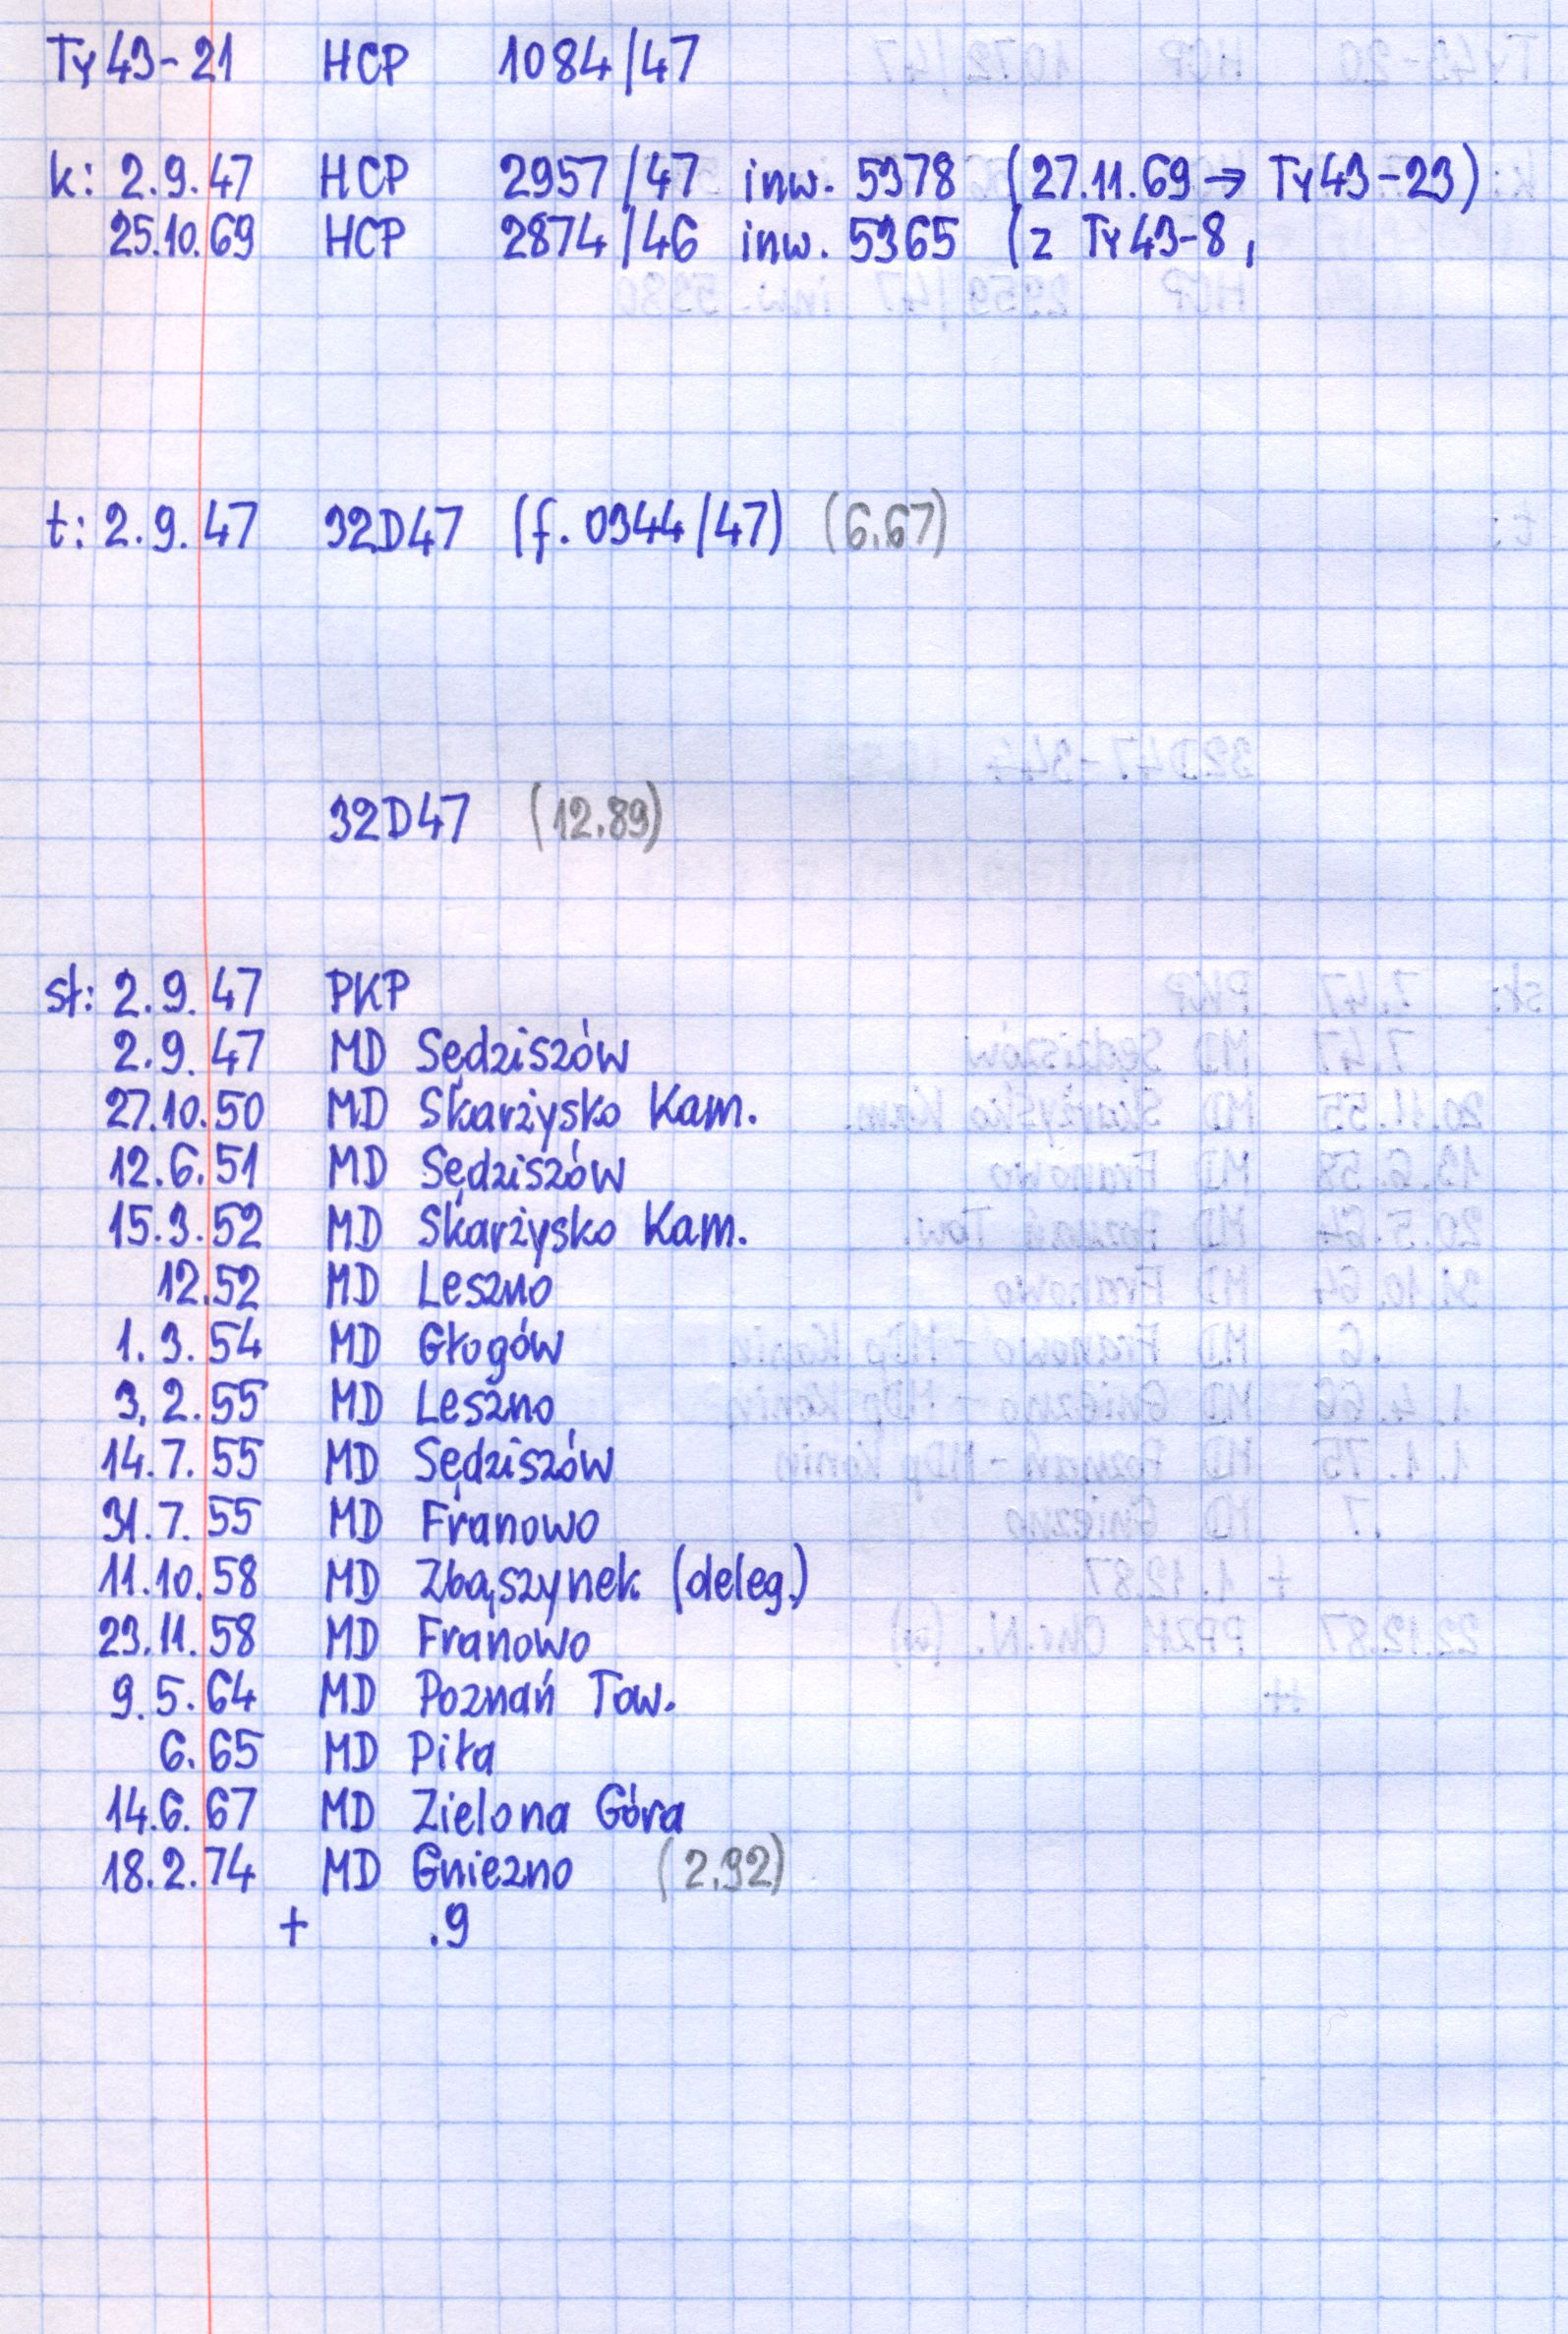 Ty43-21 HCP 1084/47
k: 2.9.47 HCP 2957/47 inw. 5378 (27.11.69 → Ty43-23)
25.10.69 HCP 2874/46 inw. 5365 (z Ty43-8,
t: 2.9.47 32D47 (f. 0344/47) (6.67)
32D47 (12.89)
st: 2.9.47 PKP
2.9.47 MD Sędziszów
27.10.50 MD Skarżysko Kam.
12.6.51 MD Sędziszów
15.3.52 MD Skarżysko Kam.
12.52 MD Leszno
1.3.54 MD Głogów
3.2.55 MD Leszno
14.7.55 MD Sędziszów
31.7.55 MD Franowo
11.10.58 MD Zbąszynek (deleg.)
23.11.58 MD Franowo
9.5.64 MD Poznań Tow.
6.65 MD Piła
14.6.67 MD Zielona Góra
18.2.74 MD Gniezno (2.92)
+ .9